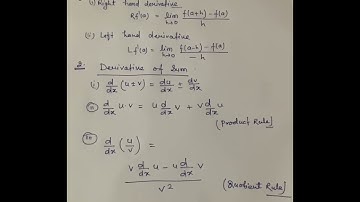 (i) Right hand derivative
Rf'(a) = lim h→0 f(a+h) - f(a) / h
(ii) Left hand derivative
Lf'(a) = lim h→0 f(a-h) - f(a) / -h
2. Derivative of Sum
(i) d/dx (u ± v) = du/dx ± dv/dx
(ii) d/dx u·v = u d/dx v + v d/dx u
(Product Rule)
(iii) d/dx (u/v) =
v d/dx u - u d/dx v / v²
(Quobient Rule)